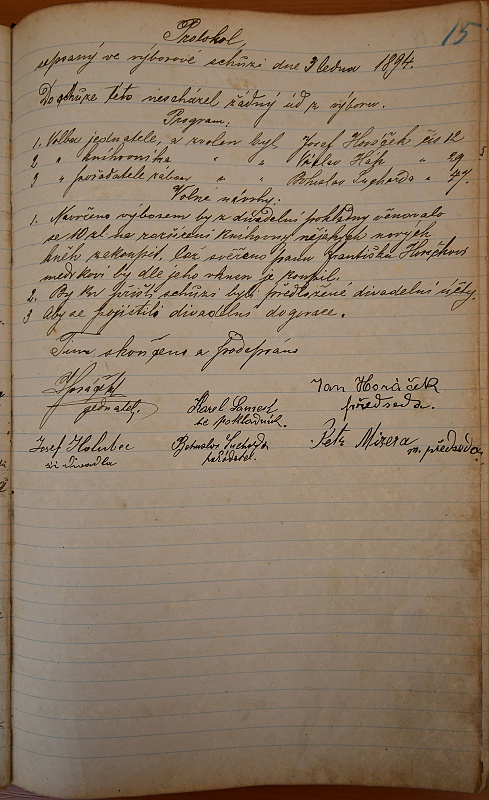 15
Protokol
sepsaný ve výborové schůzi dne 3 ledna 1894.
Do schůze této nescházel žádný úd z výboru.
Program:
1. Volba jednatele, a zvolen byl Josef Horáček čís 12
2 " knihovníka " " Václav Háji " 29
3 " pořadatele zábav " " Bohuslav Sucharda " 47.
Volné návrhy.
1. Navrženo výborem by z divadelní pokladny věnovalo
se 10 zl na zařízení knihovny nějakých nových
kněh zakoupit. Což svěřeno panu Františku Horáčkovi
medikovi by dle jeho uznání je koupil.
2. By ku příští schůzi byly předložené divadelní účty.
3 Aby se pojistilo divadelní dogorace.
Tímto skončeno a podepsáno
Horáček
jednatel,
Karel
pokladník.
Jan Horáček
předseda.
Josef Holubec
ři. divadla
Bohuslav Sucharda
pořadatel.
Petr Mizera
m. předseda.